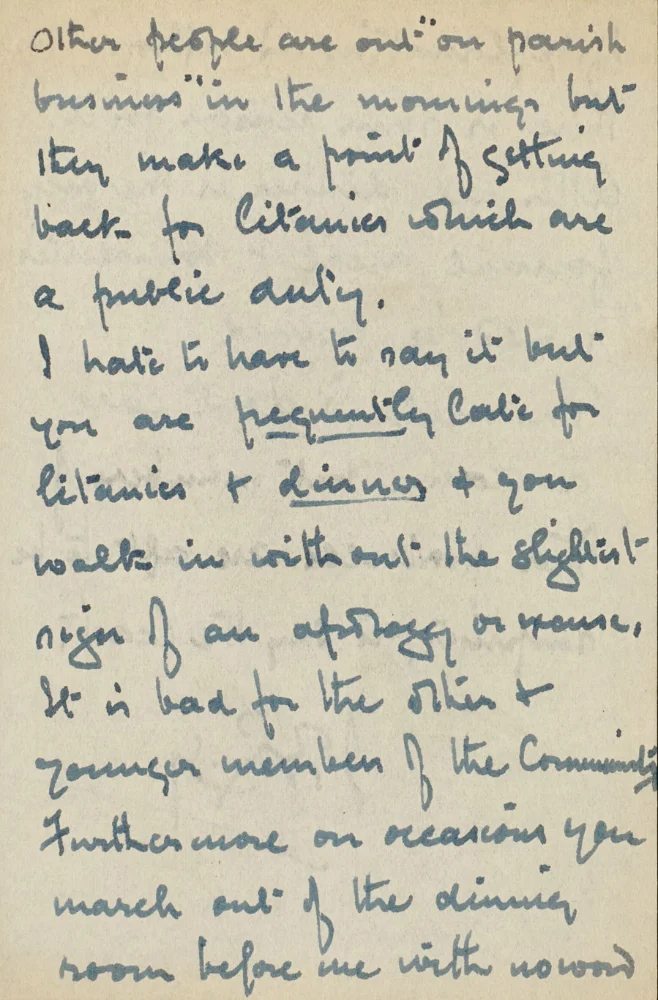 Other people are out "on parish
business" in the mornings but
they make a point of getting
back for litanies which are
a public duty.
I hate to have to say it but
you are frequently late for
litanies + dinner + you
walk in without the slightest
sign of an apology or excuse.
It is bad for the other +
younger members of the Community
Furthermore on occasions you
march out of the dinning
room before me with no word